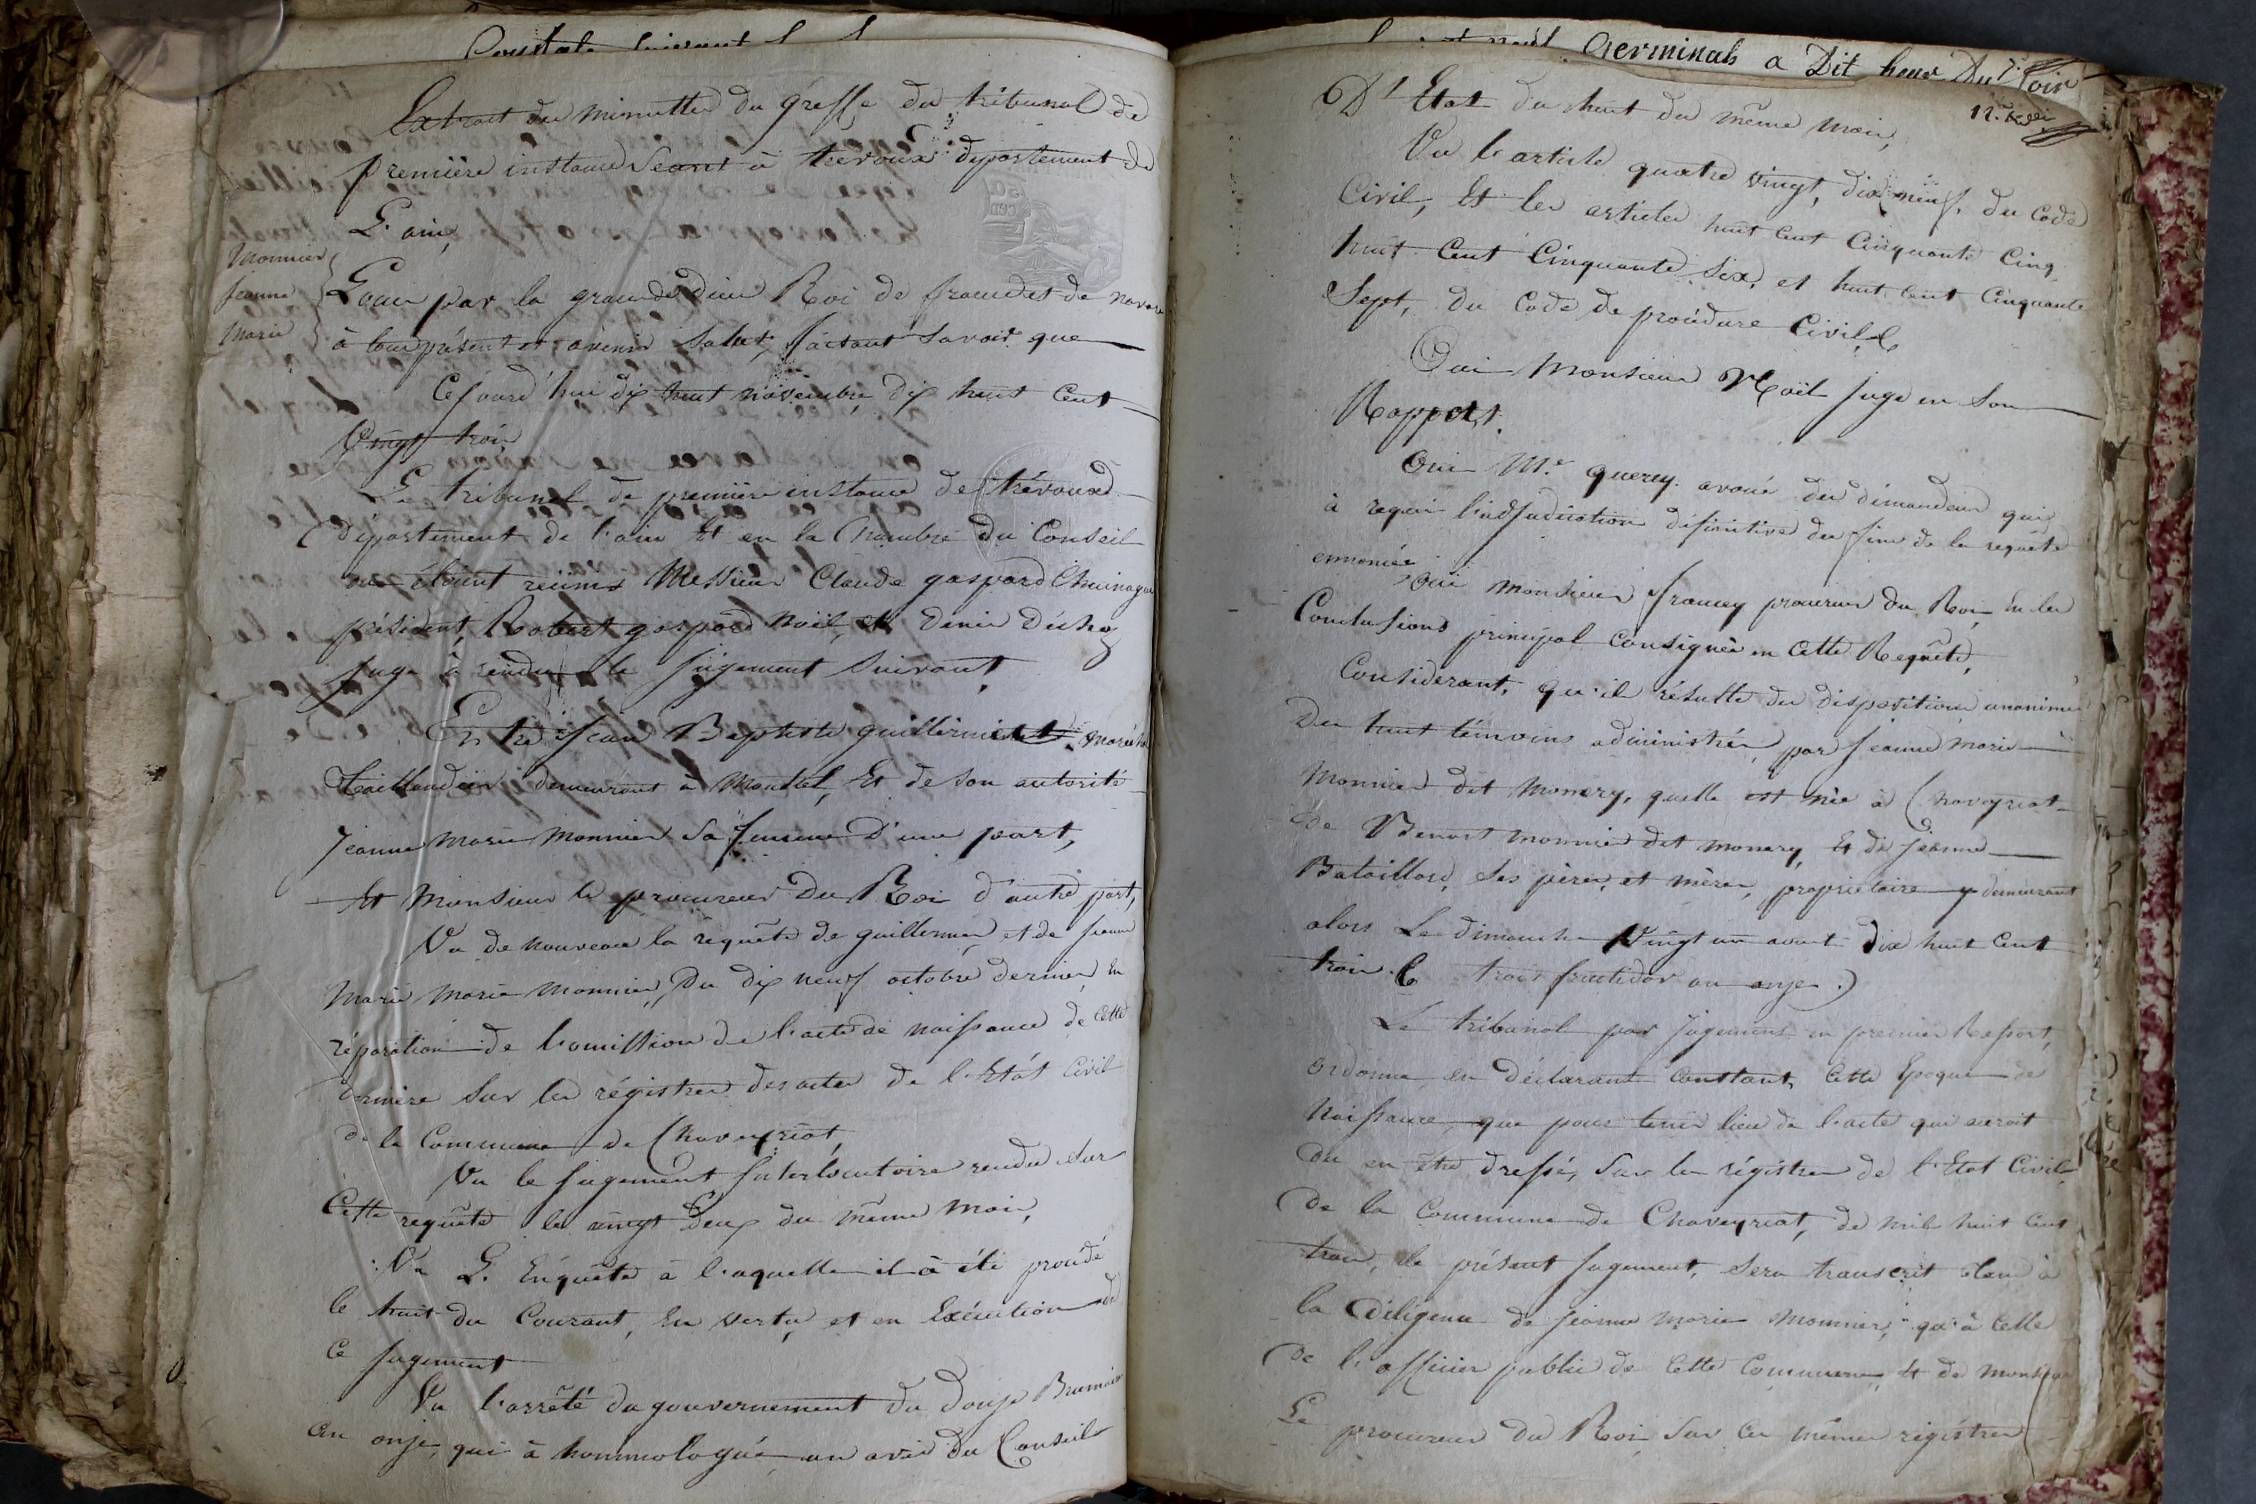 Extrait des minuttes du greffe du tribunal de
première instance séant à trévoux département de
L'ain,
Monnier
Jeanne
Marie
Louis par la grace de dieu Roi de france et de navarre
à tous présent et avenir Salut, faisant savoir que
Cejourd'hui dix huit novembre dix huit Cent
Vingt trois
Le tribunal de première instance de trévoux
département de l'ain Et en la Chambre du Conseil
ou étoient reünis Messieurs Claude gaspard
président, Robert gaspard Noël, et Denis
juge à rendu le jugement suivant,
Entre Jean Baptiste guillermier
taillandier demeurant à Monthel, Et de son autorité
Jeanne Marie Monnier sa femme D'une part,
Et Monsieur le procureur Du Roi d'autre part,
Vu de nouveau la requête de guillermier et de Jeanne
Marie Marie Monnier, Du dix neuf octobre dernier, En
réparation de l'omission de l'acte de naissance de cette
dernière Sur les régistres des actes de l'Etat Civil
de la Commune de Chaveyriat,
Vu le jugement Interlocutoire rendu sur
Cette requête le vingt Deux du même mois,
Vu L'Enquête à laquelle il à été procédé
le huit du Courant, En vertu et en Exécution de
Ce jugement
Vu l'arrêté du gouvernement du Douze Brumaire
an onze, qui à hommologué un avis du Conseil
Germinal a Dit heur Du Soir
D'Etat du huit du même mois,
Vu l'article quatre vingt, dix neuf, du Code
Civil, Et les articles huit cent Cinquante Cinq,
huit Cent Cinquante Six, et huit cent Cinquante
Sept, du Code de procédure Civile
Oui Monsieur Noël juge en Son
Rapport.
Oui M.e querey avoué des demandeurs qui
à requi l'adjudication définitive des fins de la requête
ennoncée
Oui Monsieur francey procureur du Roi, En les
Conclusions principal consignée en Cette Requête,
Considerant, qu'il résulte des dispositions unanimes
Des huit témoins administrés, par Jeanne Marie
Monnier dit Monery, quelle est née à Chaveyriat
de Benoit Monnier dit Monery, Et de Jeanne
Bataillard, Ses père, et mère, propriétaire y demeurant
alors Le dimanche Vingt un aout Dix huit Cent
trois. ( trois fructidor an onze )
Le tribunal par jugement en premier Ressort,
ordonne, en Déclarant Constant, Cette époque de
Naissance, que pour tenir lieu de l'acte qui auroit
du en être dressé, Sur les régistres de l'Etat Civil
De la Commune de Chaveyriat, de mil huit Cent
trois, le présent jugement, sera transcrit tant à
la diligence de Jeanne Marie Monnier, qu'à Celle
De l'officier public de Cette Commune, Et de Monsieur
Le procureur du Roi Sur les mêmes régistres